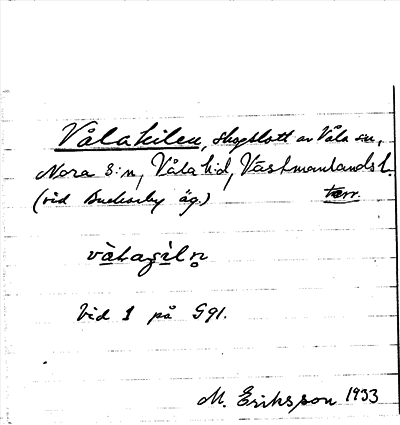 Vålakilen, skogslott av Våla sn,
Nora s:n, Våla hd, Västmanlands l.
(vid Buckarby äg.) terr.
vå̀laʂìl n̥
Vid 1 på G91.
M. Eriksson 1933